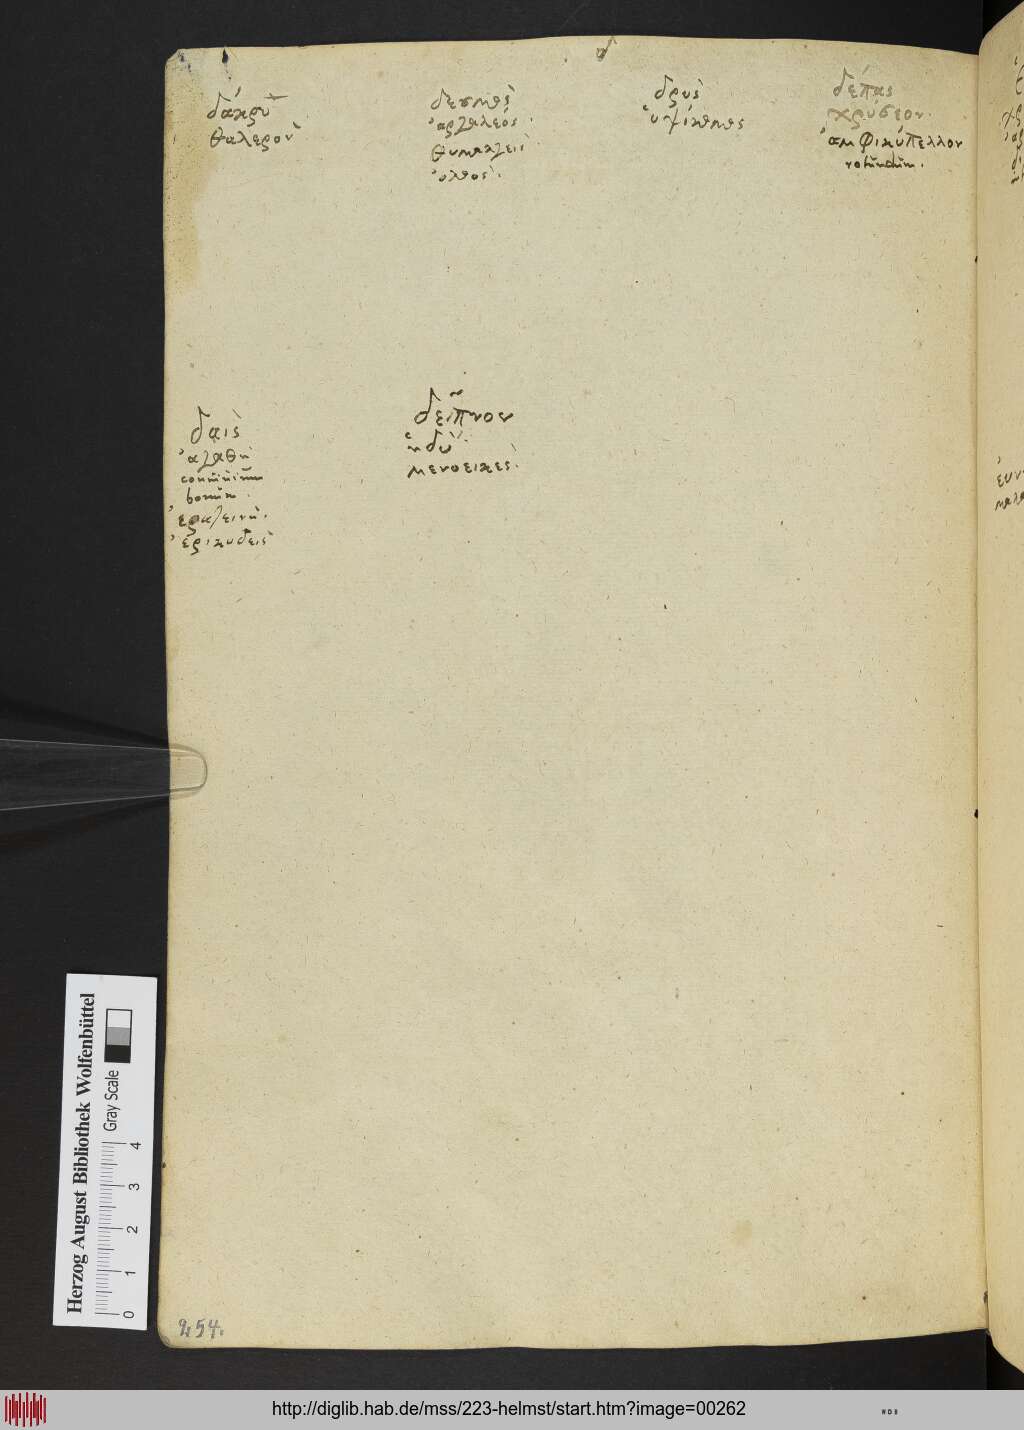 δ
δάκρυ
θαλερὸν
δεσμὸς
ἀργαλεός.
θυμαλγεὶς
δρυς
ὑψίκομος
δέπας
χρύσεον.
ἀμφικύπελλον
rotundum.
δαὶς
ἀγαθὴ
conuiuium
bonum.
ἐρατεινὴ.
ἐρικυδεὶς
δεῖπνον
ἡδὺ
μενοεικὲς.
254.
Herzog August Bibliothek Wolfenbüttel
Gray Scale
0 1 2 3 4
http://diglib.hab.de/mss/223-helmst/start.htm?image=00262